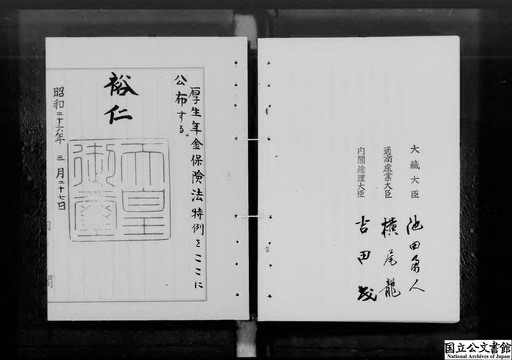 大蔵大臣 池田勇人
通商産業大臣 横尾龍
内閣総理大臣 吉田茂
厚生年金保険法特例をここに
公布する。
裕仁
天皇御璽
昭和二十六年三月二十七日
内閣
国立公文書館
National Archives of Japan